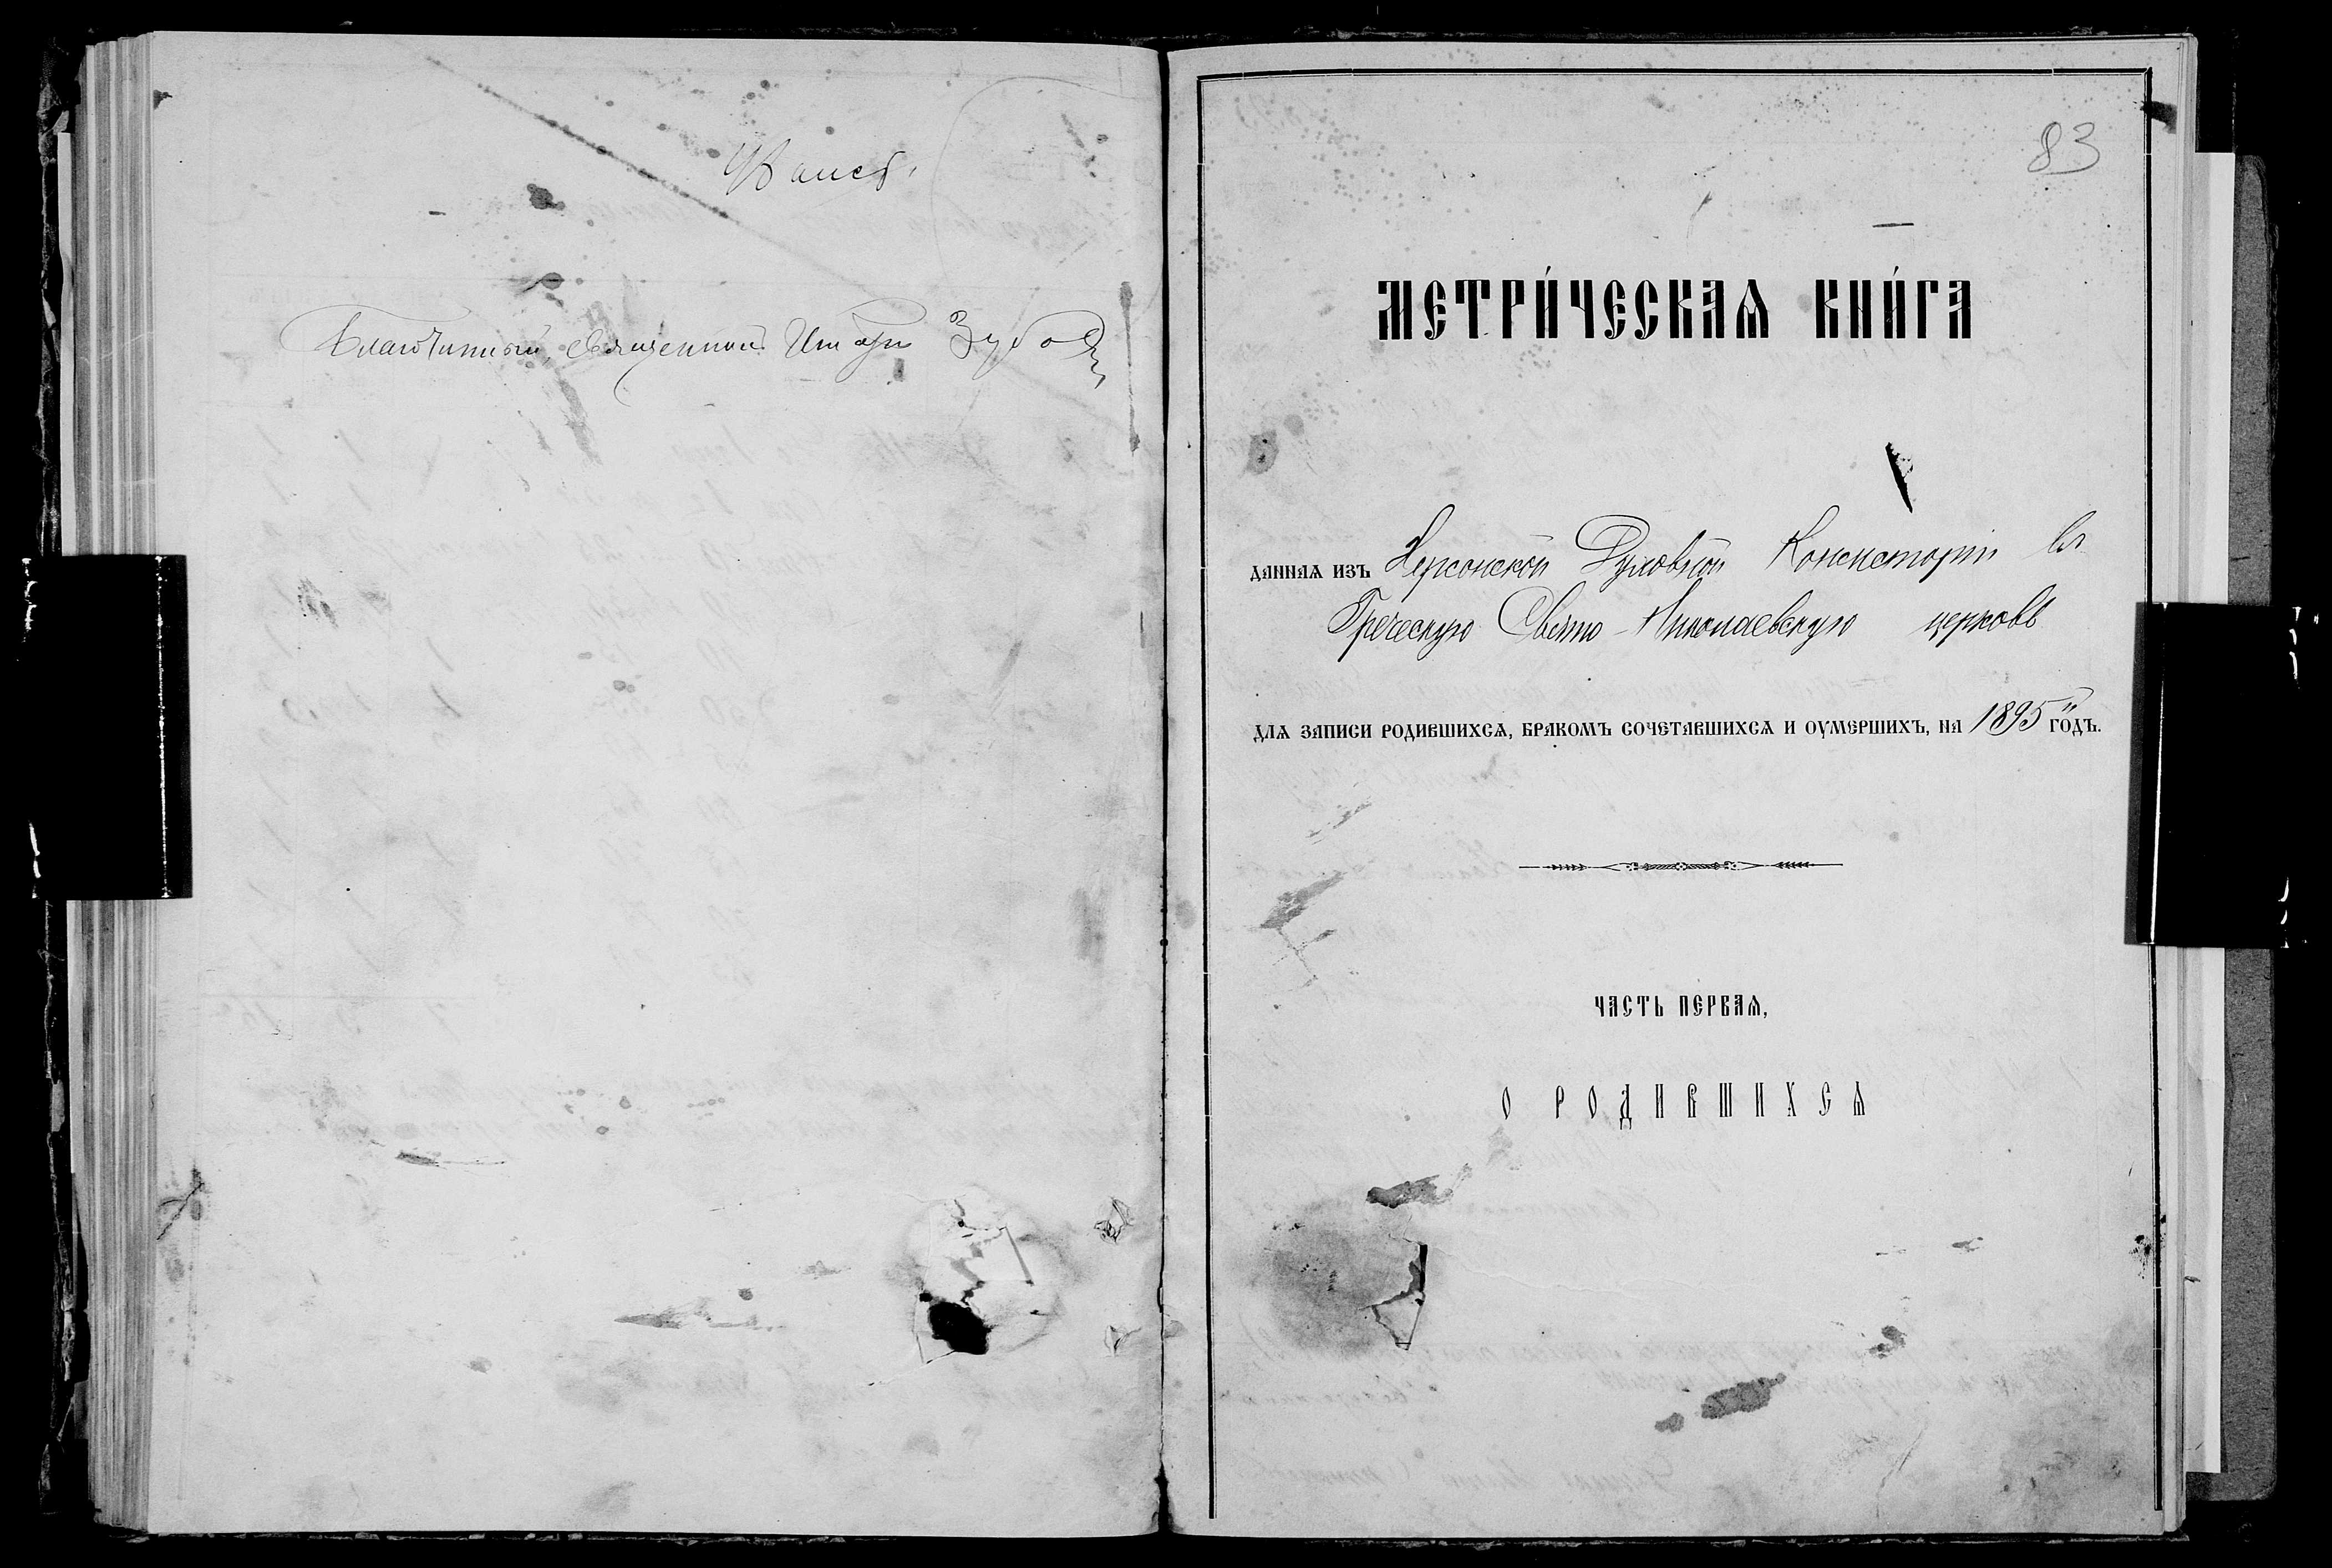 Благочинный, священник Зубо
83
МЕТРИ́ЧЕСКАѦ КНИ́ГА
ДАННАѦ ИЗЪ Херсонской Духовной Консисторіи въ
Греческую Свято-Николаевскую церковь
ДЛѦ ЗАПИСИ РОДИВШИХСѦ, БРАКОМЪ СОЧЕТАВШИХСѦ И ОУМЕРШИХЪ, НА 1895й ГОДЪ.
ЧАСТЬ ПЕРВАѦ,
О РОДИВШИХСѦ